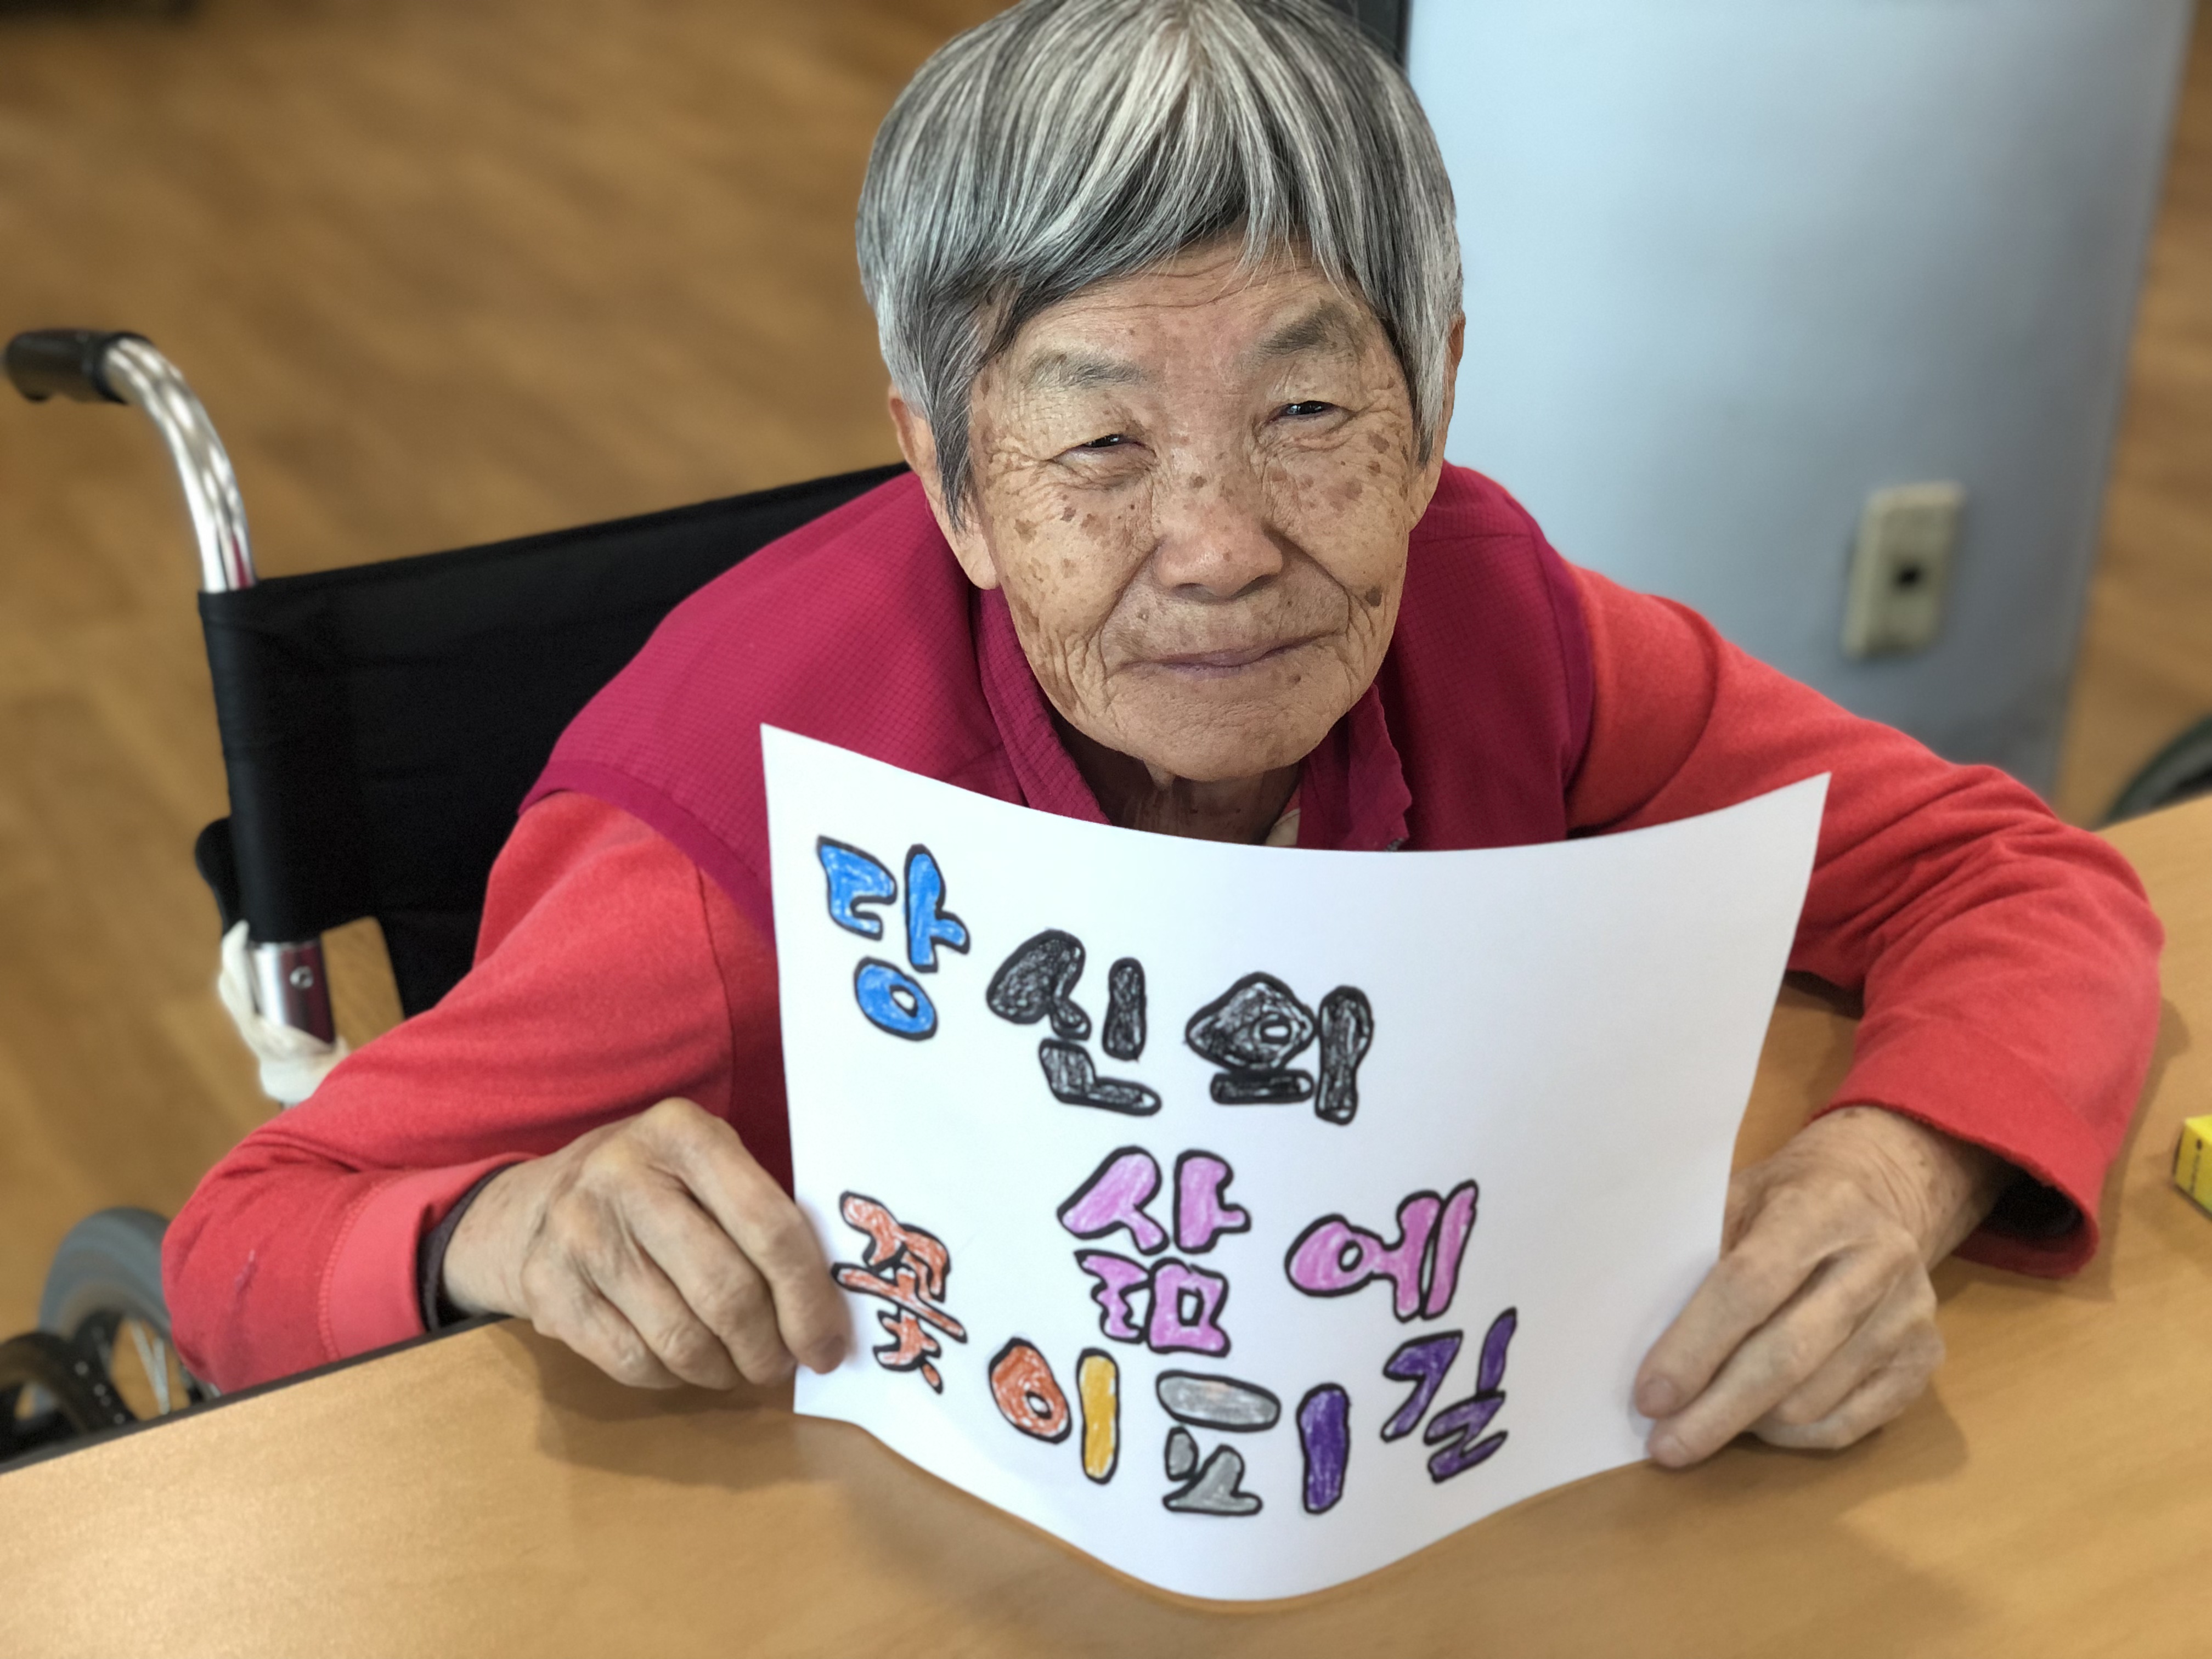 당신의
삶에
꽃이 피길